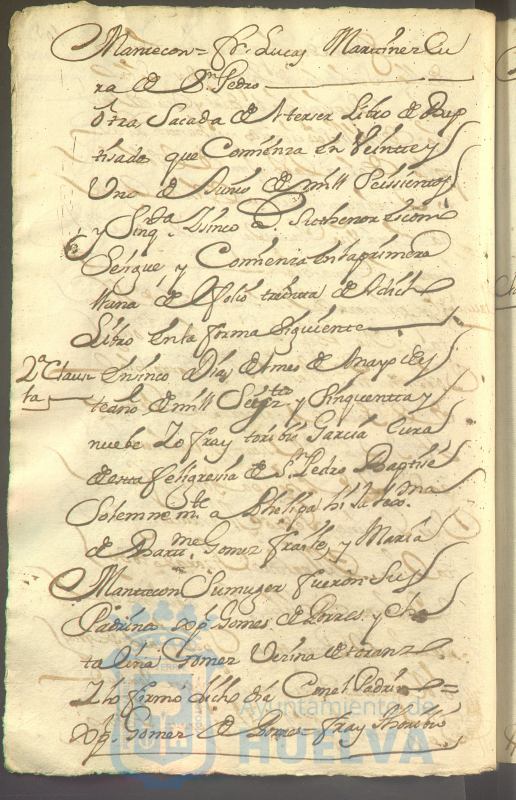 Mantecon = fr. Lucas Martinez Cu
ra de Sn. Pedro
Otra Sacada del terser Libro de Bap
tisados que Comiensa en Veinte y
Uno de Junio de mill Seisientos
y Sinqta. Sinco
Sengue y Comiensa en la primera
llana del folio treinta de dicho
Libro en la forma Siguiente
2ª Clausu
la
en sinco Dias del mes de Mayo de es
te año de mill Seiszto. y Sinquenta y
nuebe Yo fray toribio Garcia Cura
de esta feligresia de Sn. Pedro Baptisé
Solemnemte. a Phelipa hixa lexma.
de Bartme. Gomez fraile y Maria
Mantecon Su muger fueron Sus
Padrinos xpl. Gomes de Borres y
ta Lina Gomez Vesina de
Y lo firmé dicho dia Con el Padrino =
xpl. Gomez de Borres = fray thoribio
Ayuntamiento de
HUELVA